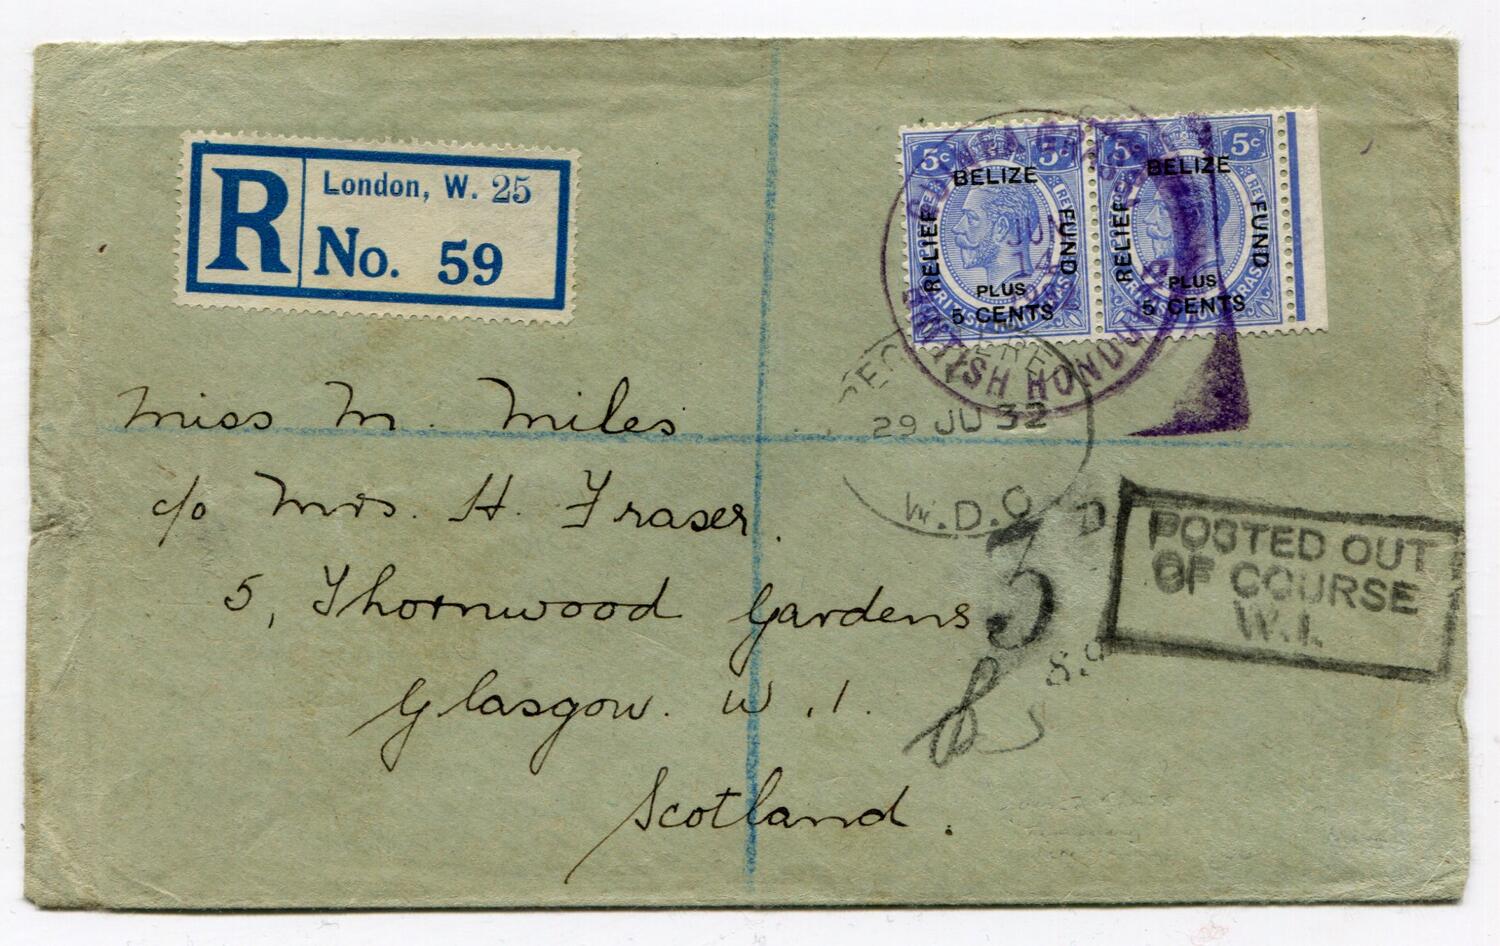 R
London, W. 25
No. 59
5c 5c
BELIZE
RELIEF FUND
PLUS
5 CENTS
5c 5c
BELIZE
RELIEF FUND
PLUS
5 CENTS
JUN
14
BRITISH HONDURAS
29 JU 32
W.D.O
Miss M. Miles
c/o Mrs. H. Fraser.
5, Thornwood Gardens
Glasgow. W.1.
Scotland.
3 D
POSTED OUT
OF COURSE
W.I.